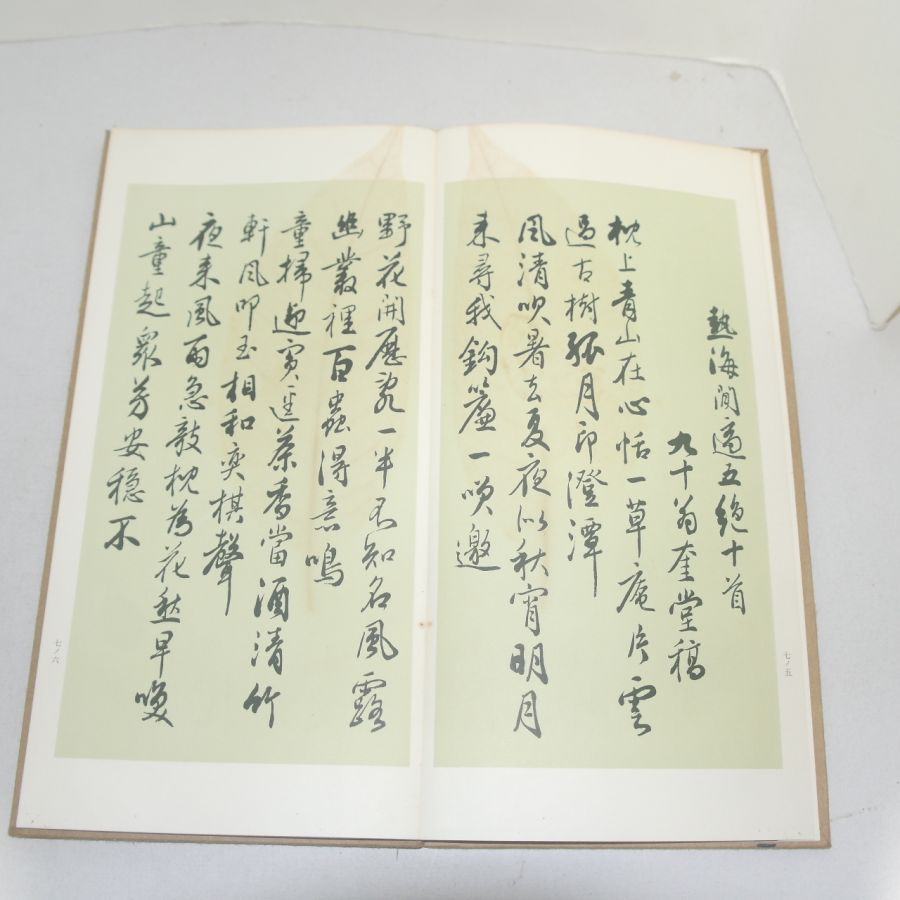 熱海閒適五絶十首
九十翁奎堂稿
枕上青山在心恬一草庵片雲
過古樹孤月印澄潭
風清吹暑去夏夜似秋宵明月
来尋我鈎簾一笑邀
七ノ五
野花開歴乱一半不知名風露
幽叢裡百蟲得意鳴
童掃迎賓逕茶香當酒清竹
軒風叩玉相和奕棋聲
夜来風雨急敲枕為花愁早喚
山童起衆芳安穏不
七ノ六